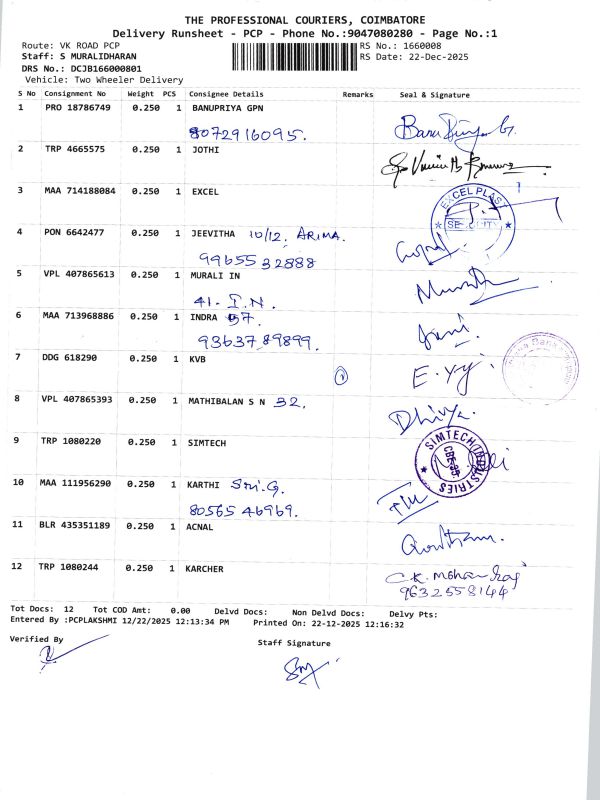 THE PROFESSIONAL COURIERS, COIMBATORE
Delivery Runsheet - PCP - Phone No.:9047080280 - Page No.:1
Route: VK ROAD PCP RS No.: 1660008
Staff: S MURALIDHARAN RS Date: 22-Dec-2025
DRS No.: DCJB166000801
Vehicle: Two Wheeler Delivery
S No Consignment No Weight PCS Consignee Details Remarks Seal & Signature
1 PRO 18786749 0.250 1 BANUPRIYA GPN
8072916095.
2 TRP 4665575 0.250 1 JOTHI
3 MAA 714188084 0.250 1 EXCEL
EXCEL PLAST
SECURITY
4 PON 6642477 0.250 1 JEEVITHA 10/12, ARIMA.
9965532888
5 VPL 407865613 0.250 1 MURALI IN
41. I.N.
6 MAA 713968886 0.250 1 INDRA 57.
9363789899.
7 DDG 618290 0.250 1 KVB
8 VPL 407865393 0.250 1 MATHIBALAN S N 32.
Dhivya.
9 TRP 1080220 0.250 1 SIMTECH
SIMTECH INDUSTRIES
10 MAA 111956290 0.250 1 KARTHI Sri.G.
8056546969.
11 BLR 435351189 0.250 1 ACNAL
Gowtham.
12 TRP 1080244 0.250 1 KARCHER C.K. Mohan Raj
9632558144
Tot Docs: 12 Tot COD Amt: 0.00 Delvd Docs: Non Delvd Docs: Delvy Pts:
Entered By :PCPLAKSHMI 12/22/2025 12:13:34 PM Printed On: 22-12-2025 12:16:32
Verified By Staff Signature